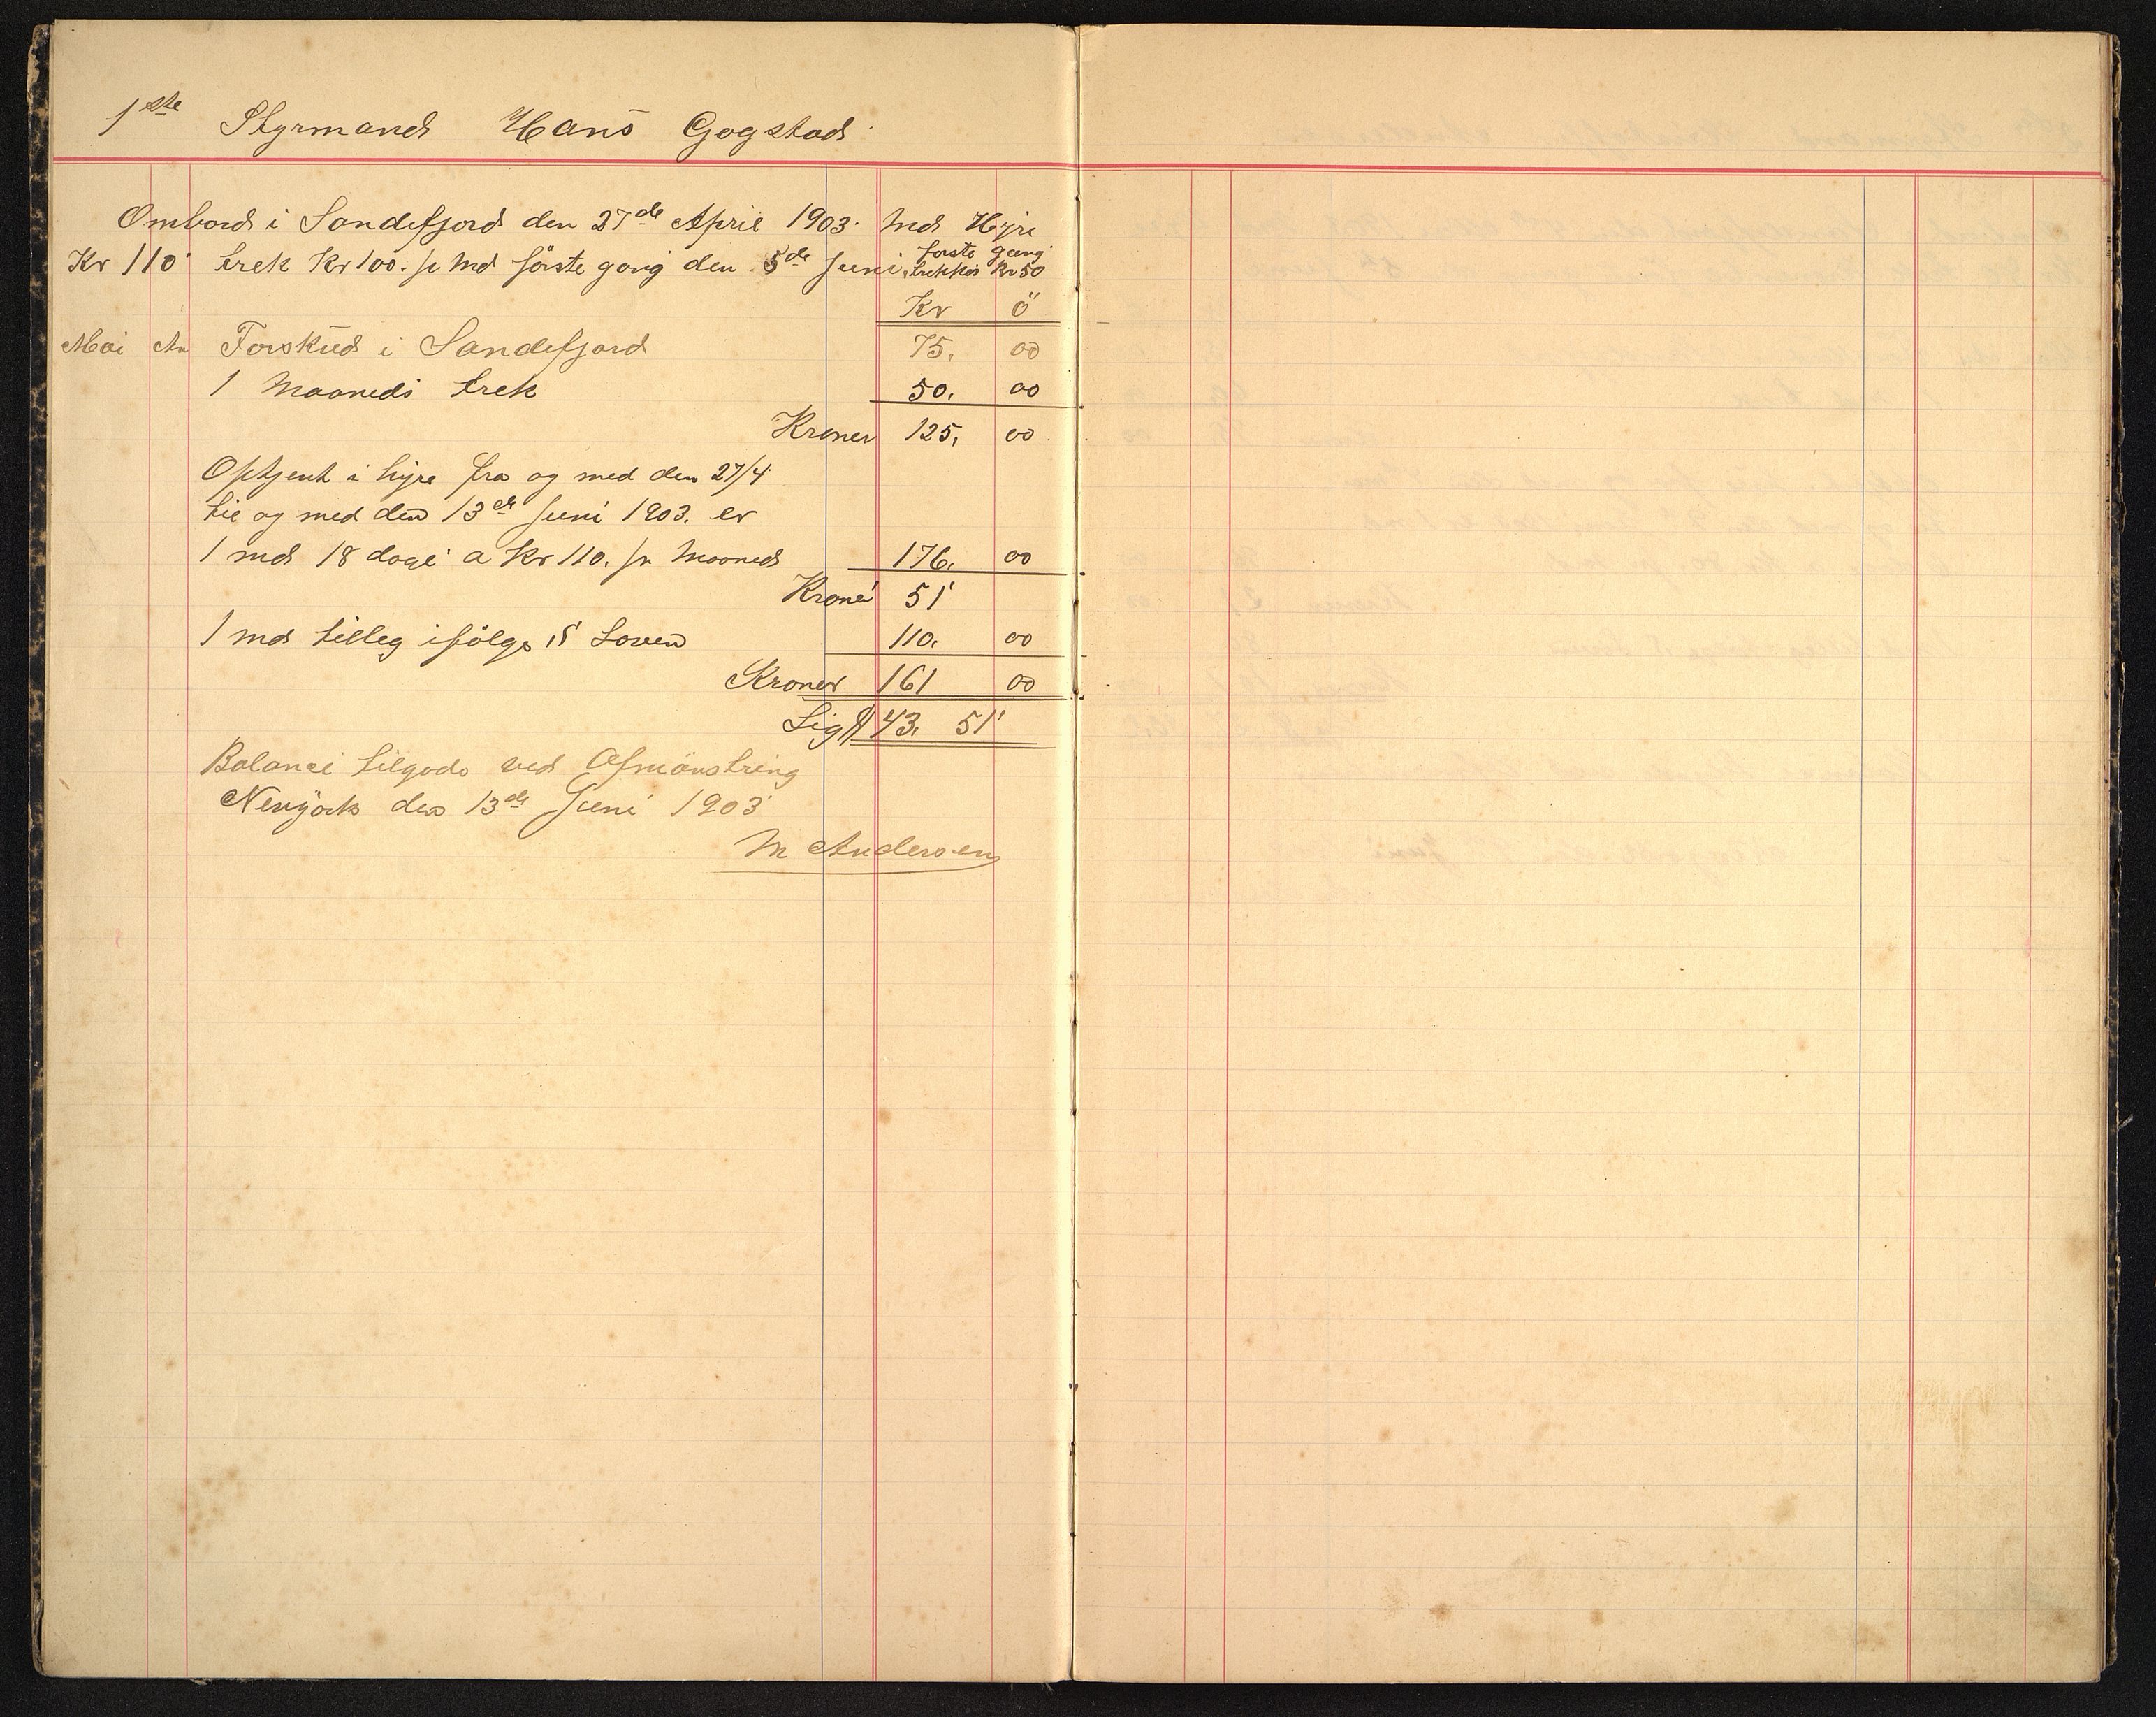 1ste Styrmand Hans Gogstad
Ombord i Sandefjord den 27de April 1903. med Hyre
Kr 110 trek Kr 100. pr Md förste gang den 5de Juni förste gang trekkes Kr 50
Kr ö
Mai An Forskud i Sandefjord 75. 00
1 Maaneds trek 50. 00
Kroner 125. 00
Optjent i hyre fra og med den 27/4
til og med den 13de Juni 1903. er
1 md 18 dage a Kr 110. pr Maaned 176. 00
Kroner 51
1 md tilleg ifölge § Loven 110. 00
Kroner 161 00
Lig $ 43. 51
Balance tilgode ved Afmönstring
Newyörk den 13de Juni 1903
M Andersen